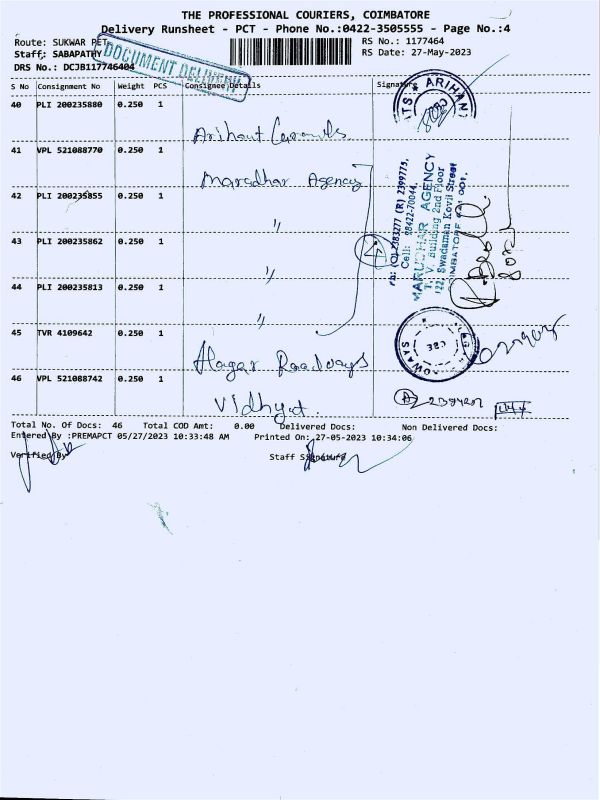 THE PROFESSIONAL COURIERS, COIMBATORE
Delivery Runsheet - PCT - Phone No.:0422-3505555 - Page No.:4
Route: SUKWAR PET
RS No.: 1177464
Staff: SABAPATHY
RS Date: 27-May-2023
DRS No.: DCJB117746404
DOCUMENT DELIVERY
S No Consignment No Weight PCS Consignee Details Signature
40 PLI 200235880 0.250 1
ARIHANT
Arihant
41 VPL 521088770 0.250 1
Marudhar Agency
42 PLI 200235855 0.250 1
"
43 PLI 200235862 0.250 1
"
4
44 PLI 200235813 0.250 1
"
Ph: (O) 2383277 (R) 2399775,
Cell: 98422-70044,
MARUDHAR AGENCY
T. V. Building 2nd Floor
122, Swadaman Kovil Street
COIMBATORE 641 001.
45 TVR 4109642 0.250 1
Alagar Roadways
CBE
46 VPL 521088742 0.250 1
Vidhyut.
Total No. Of Docs: 46 Total COD Amt: 0.00 Delivered Docs: Non Delivered Docs:
Entered By :PREMAPCT 05/27/2023 10:33:48 AM Printed On: 27-05-2023 10:34:06
Verified By
Staff Signature